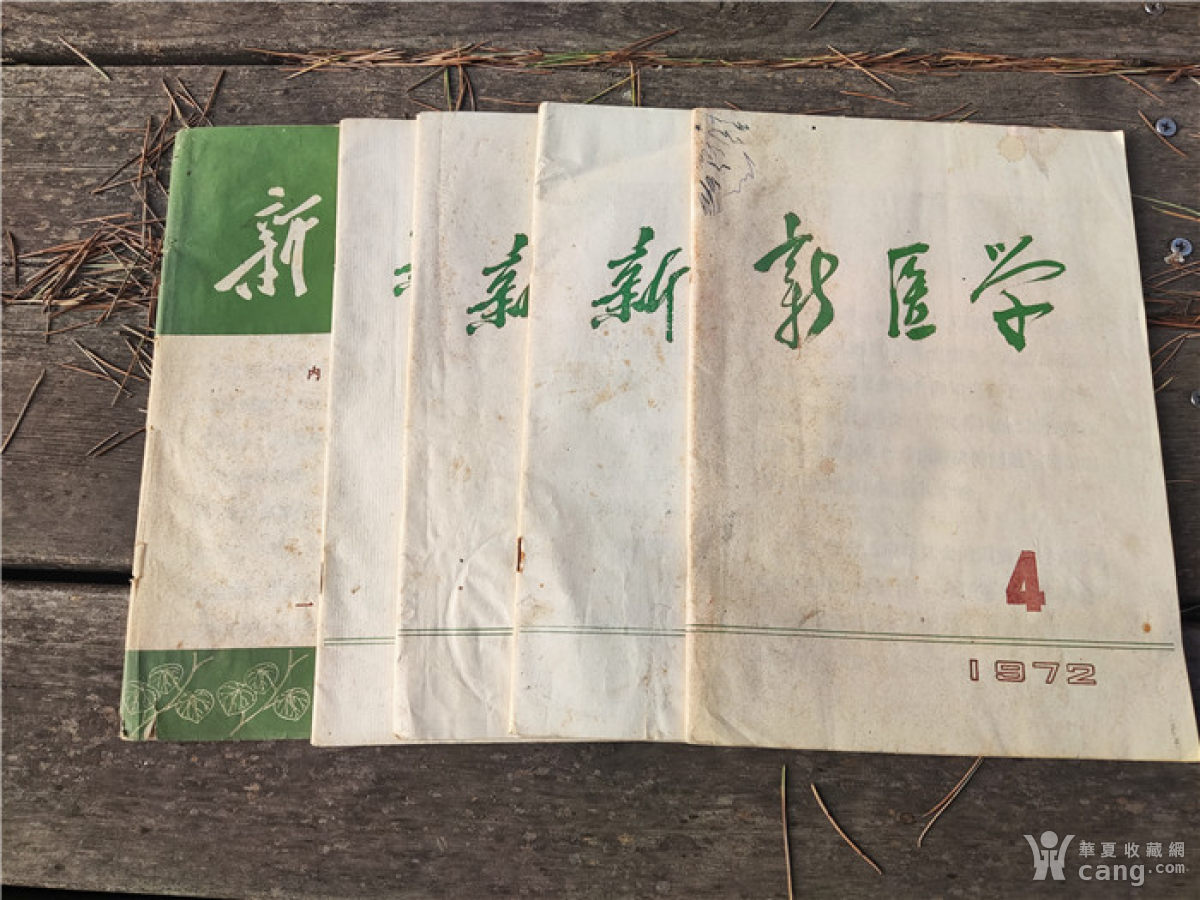 新
内
一
新
新
新医学
4
1972
華夏收藏網
cang.com